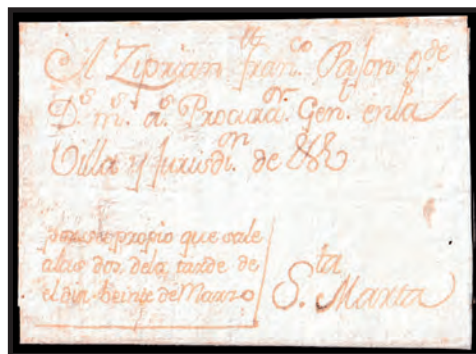 A Ziprian fran.co Pason g.de
D.s m.s a.s Procura.or Gen.l en la
Villa y Jurisdi.on de
por su propio que sale
a las dos de la tarde de
el dia beinte de Marzo
S.ta Marta